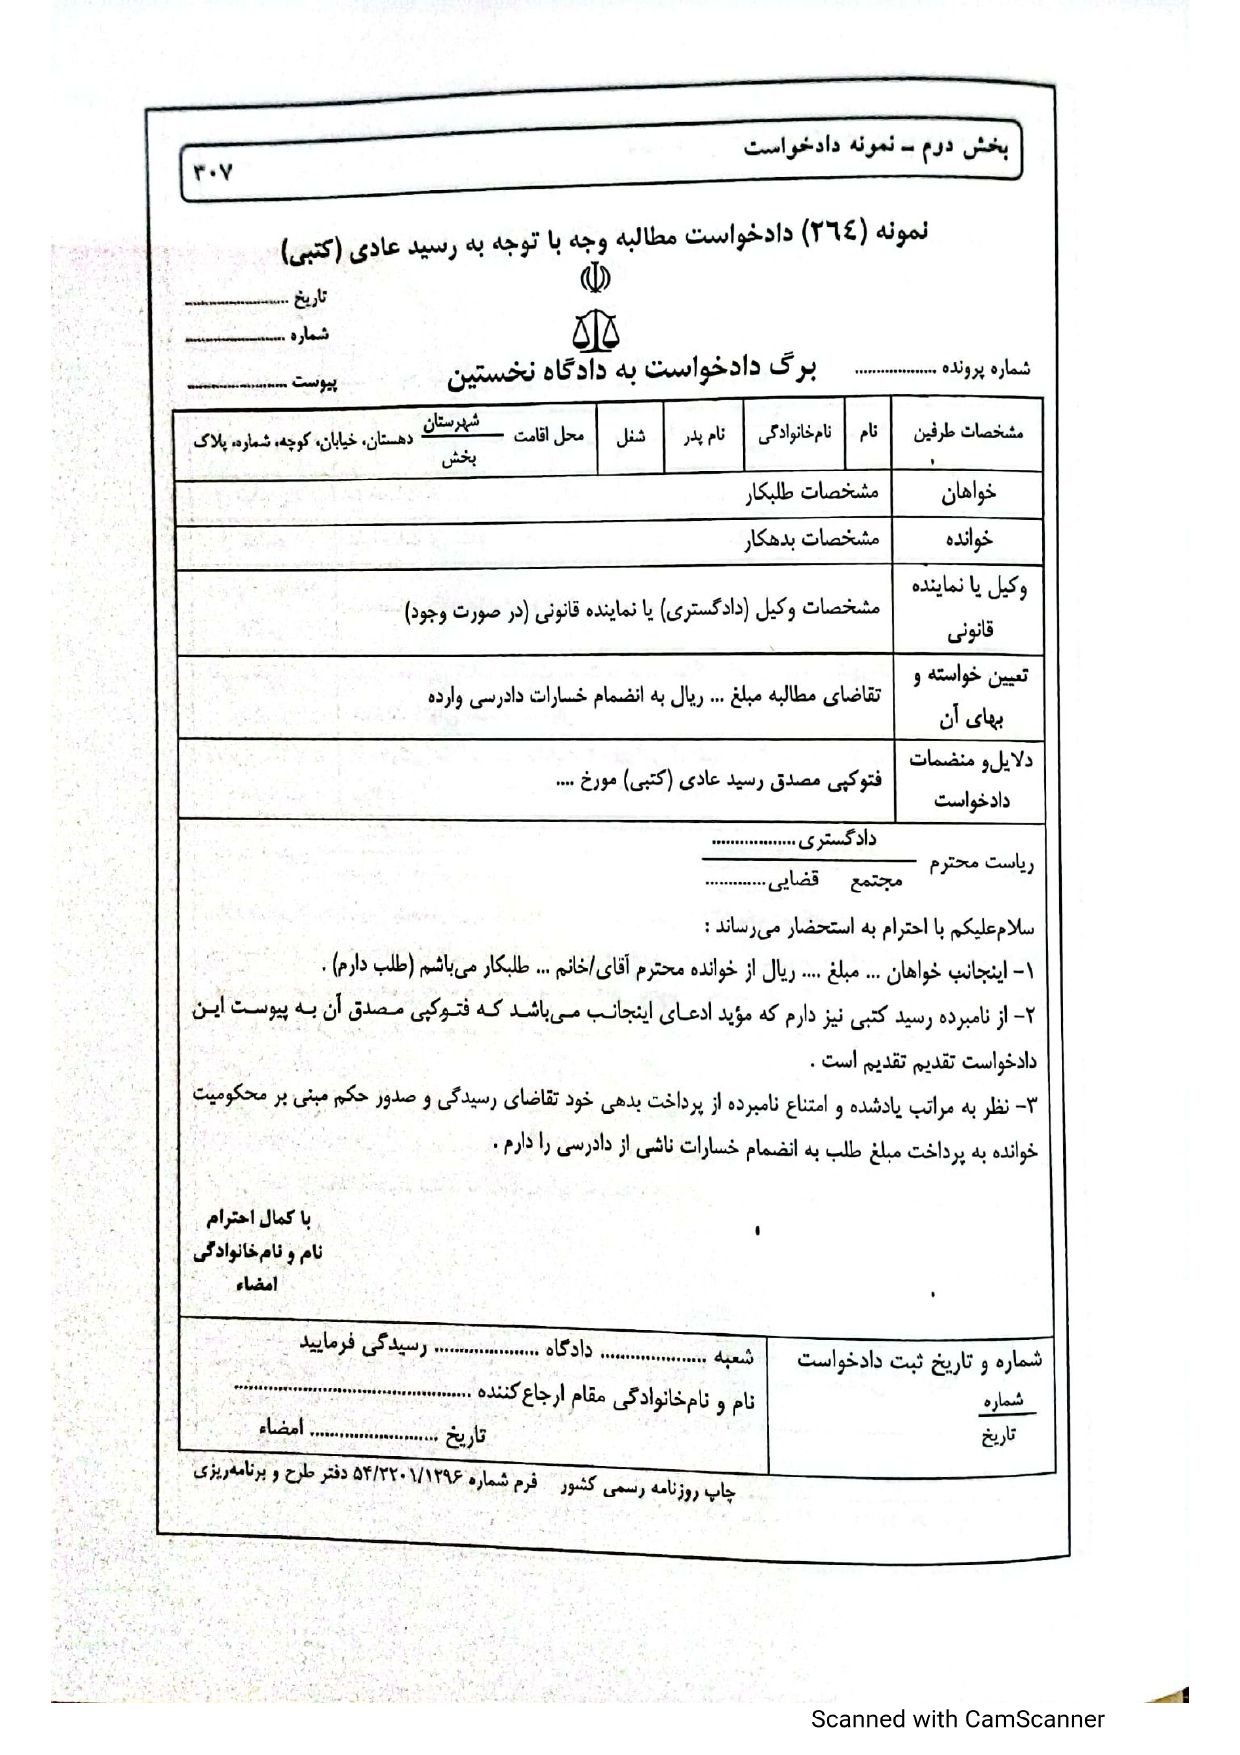 بخش دوم – نمونه دادخواست
۳۰۷
نمونه (٢٦٤) دادخواست مطالبه وجه با توجه به رسید عادی (کتبی)
تاریخ ......................
شماره ......................
پیوست ......................
شماره پرونده ...................
برگ دادخواست به دادگاه نخستین
مشخصات طرفین
نام
نام‌خانوادگی
نام پدر
شغل
محل اقامت شهرستان بخش دهستان، خیابان، کوچه، شماره، پلاک
خواهان
مشخصات طلبکار
خوانده
مشخصات بدهکار
وکیل یا نماینده
قانونی
مشخصات وکیل (دادگستری) یا نماینده قانونی (در صورت وجود)
تعیین خواسته و
بهای آن
تقاضای مطالبه مبلغ ... ریال به انضمام خسارات دادرسی وارده
دلایل‌و منضمات
دادخواست
فتوکپی مصدق رسید عادی (کتبی) مورخ ....
دادگستری ..................
ریاست محترم
مجتمع قضایی .............
سلام‌علیکم با احترام به استحضار می‌رساند :
۱- اینجانب خواهان ... مبلغ .... ریال از خوانده محترم آقای/خانم ... طلبکار می‌باشم (طلب دارم) .
۲- از نامبرده رسید کتبی نیز دارم که مؤید ادعای اینجانب می‌باشد که فتوکپی مصدق آن به پیوست این
دادخواست تقدیم تقدیم است .
۳- نظر به مراتب یادشده و امتناع نامبرده از پرداخت بدهی خود تقاضای رسیدگی و صدور حکم مبنی بر محکومیت
خوانده به پرداخت مبلغ طلب به انضمام خسارات ناشی از دادرسی را دارم .
با کمال احترام
نام و نام‌خانوادگی
امضاء
شماره و تاریخ ثبت دادخواست
شماره
تاریخ
شعبه ...................... دادگاه ...................... رسیدگی فرمایید
نام و نام‌خانوادگی مقام ارجاع‌کننده ..................................................
تاریخ ........................... امضاء
چاپ روزنامه رسمی کشور فرم شماره ۵۴/۲۲۰۱/۱۲۹۶ دفتر طرح و برنامه‌ریزی
Scanned with CamScanner